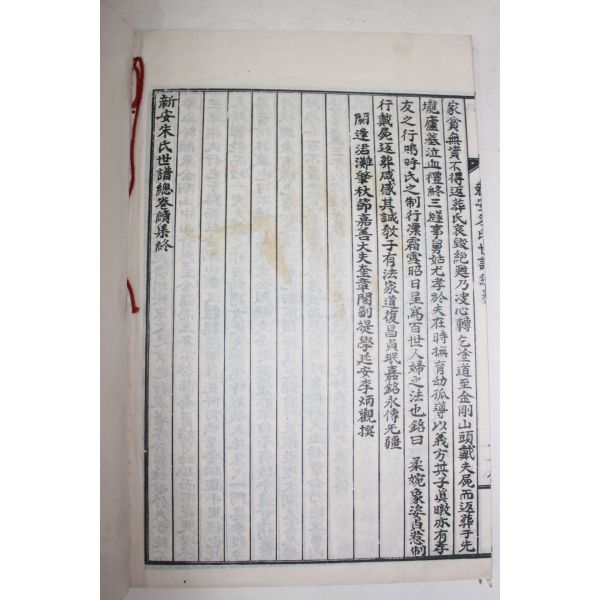 新安朱氏世譜總卷
家貧無資不得返葬氏哀毀絶甦乃決心轉乞塗道至金剛山頭戴夫屍而返葬于先
壠廬墓泣血禮終三霜事舅姑尤孝於夫在時撫育幼孤導以義方其子眞暾亦有孝
友之行嗚呼氏之制行凜霜雪昭日星爲百世人婦之法也銘曰 柔婉象姿貞懿制
行戴屍返葬咸感其誠敎子有法家道復昌貞珉嘉銘永傳无疆
閼逢涒灘肇秋節嘉善大夫奎章閣副提學延安李炳觀撰
新安朱氏世譜總卷續集終